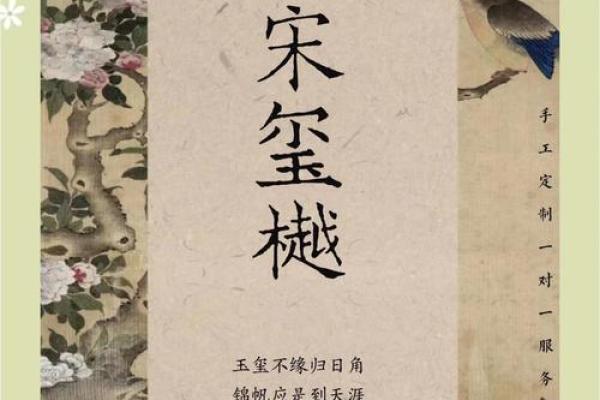 宋玺樾
玉玺不缘归日角
锦帆应是到天涯
手工定制一对一服务